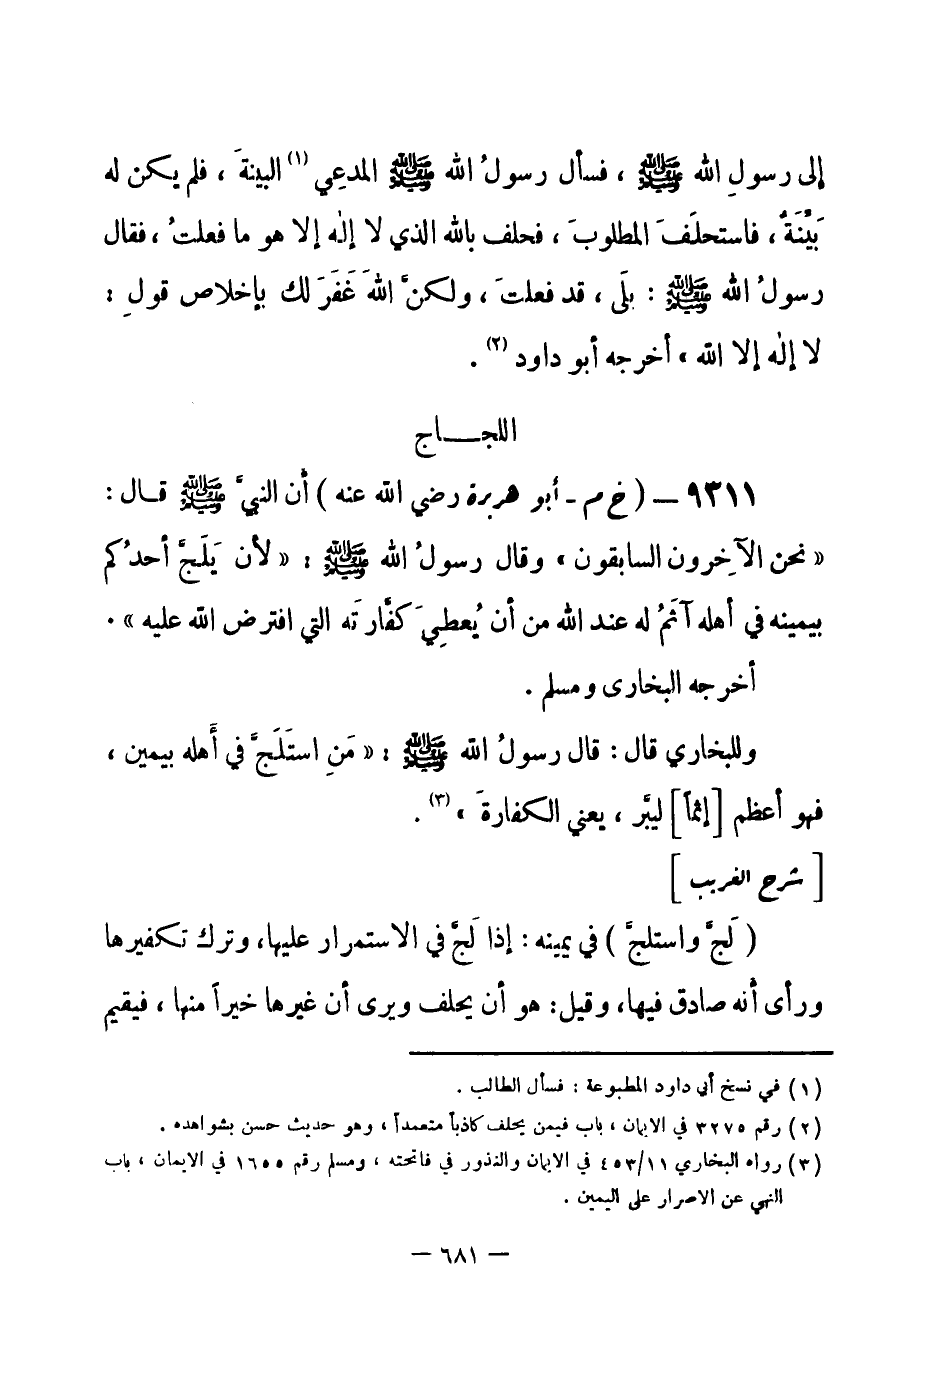 إلى رسولِ الله ﷺ ، فسأل رسولُ الله ﷺ المدعِي (١) البينةَ ، فلم يكن له
بَيِّنَةٌ ، فاستحلَفَ المطلوبَ ، فحلف بالله الذي لا إلٰه إلا هو ما فعلتُ ، فقال
رسولُ الله ﷺ : بلَى ، قد فعلتَ ، ولكنَّ اللهَ غَفَرَ لك بإخلاص قولِ :
لا إلٰه إلا الله » أخرجه أبو داود (٢) .
اللجـــاج
٩٣١١ – ( خ م - أبو هريرة رضي الله عنه ) أن النبيَّ ﷺ قـال :
« نحن الآخِرون السابقون » وقال رسولُ الله ﷺ : « لأن يَلَجَّ أحدُكم
بيمينه في أهله آثَمُ له عند الله من أن يُعطِيَ كفَّارتَه التي افترض الله عليه » .
أخرجه البخارى ومسلم .
وللبخاري قال : قال رسولُ الله ﷺ : « مَنِ استَلَجَّ في أَهله بيمين ،
فهو أعظم [إثماً] ليبَّر ، يعني الكفارةَ » (٣) .
[ شرح الغريب ]
( لَجَّ واستلجَّ ) في يمينه : إذا لَجَّ في الاستمرار عليها، وترك تكفيرها
ورأى أنه صادق فيها، وقيل: هو أن يحلف ويرى أن غيرها خيراً منها ، فيقيم
(١) في نسخ أبي داود المطبوعة : فسأل الطالب .
(٢) رقم ٣٢٧٥ في الايمان ، باب فيمن يحلف كاذباً متعمداً ، وهو حديث حسن بشواهده .
(٣) رواه البخاري ٤٥٣/١١ في الايمان والنذور في فاتحته ، ومسلم رقم ١٦٥٥ في الايمان ، باب
النهي عن الاصرار على اليمين .
– ٦٨١ –